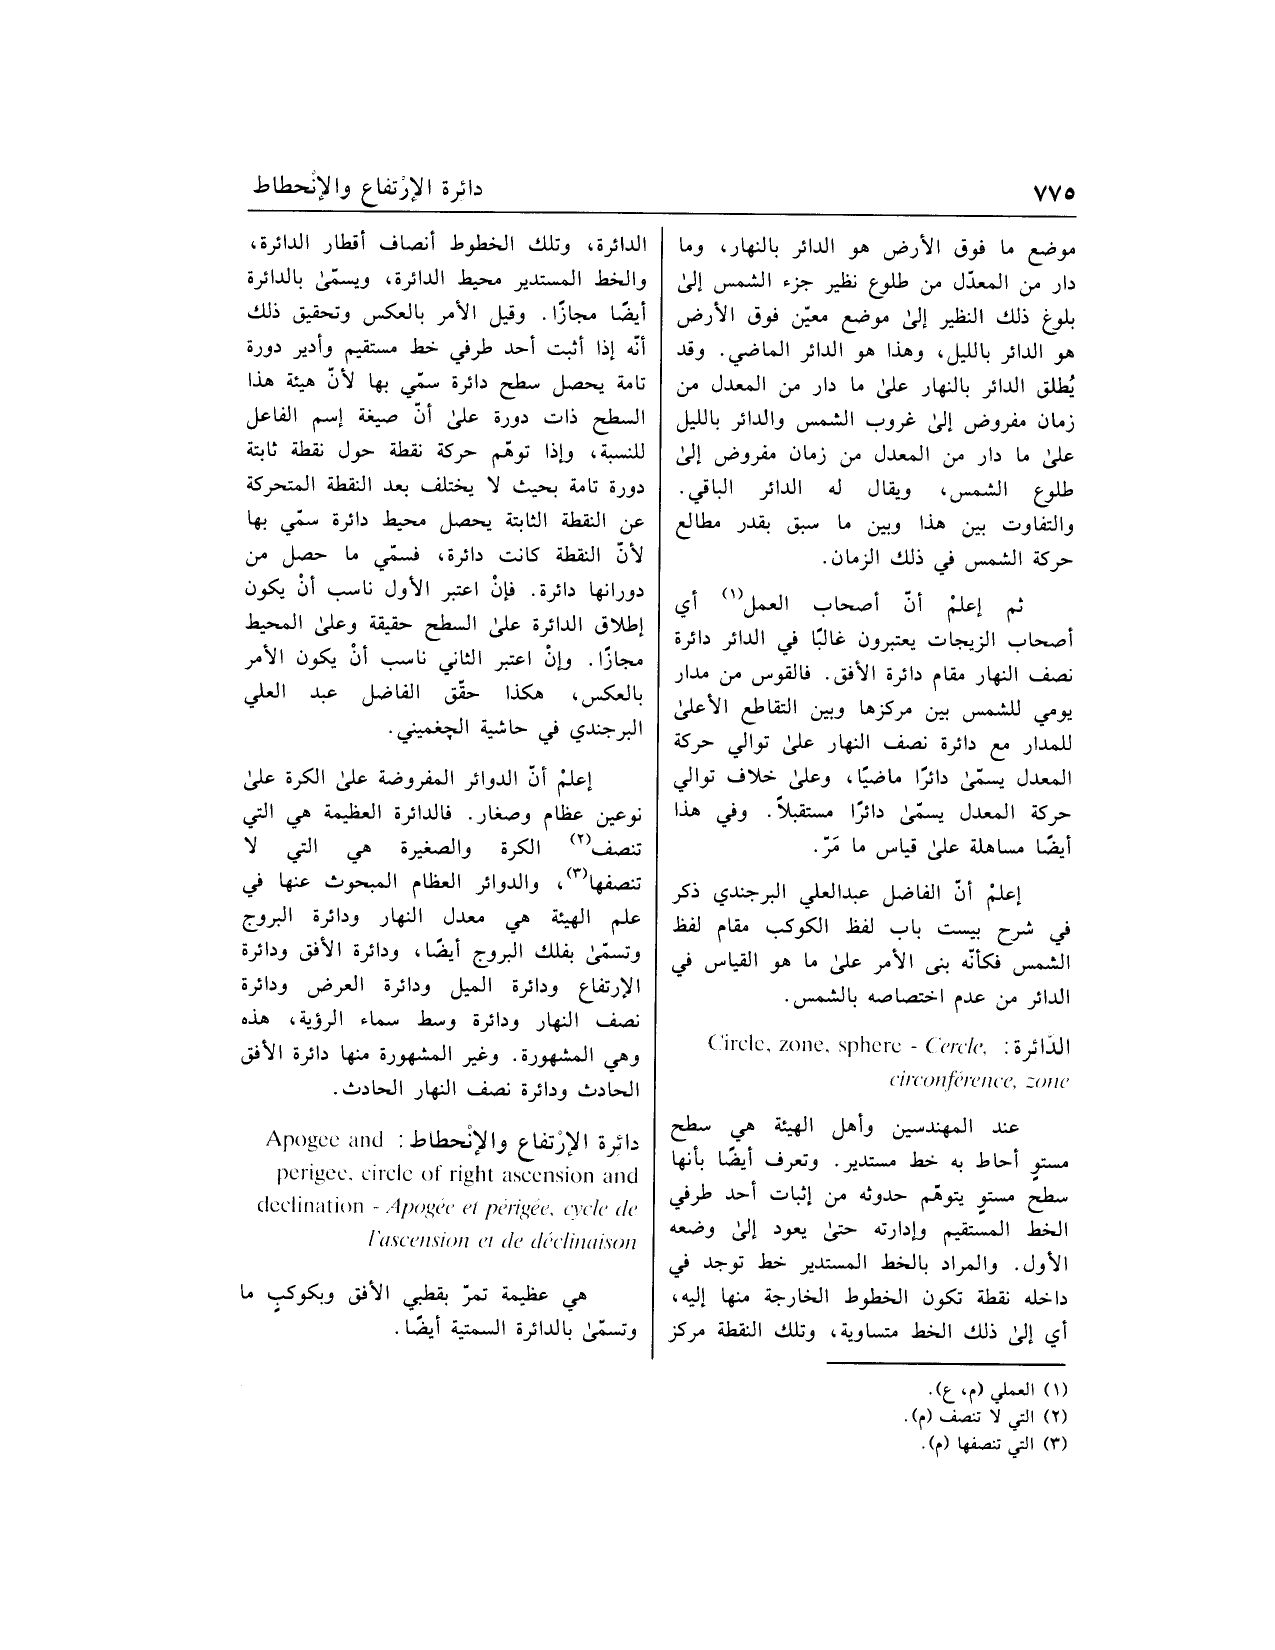 ٧٧٥
دائرة الإرْتفاع والإنْحطاط
موضع ما فوق الأرض هو الدائر بالنهار، وما
دار من المعدّل من طلوع نظير جزء الشمس إلىٰ
بلوغ ذلك النظير إلىٰ موضع معيّن فوق الأرض
هو الدائر بالليل، وهذا هو الدائر الماضي. وقد
يُطلق الدائر بالنهار علىٰ ما دار من المعدل من
زمان مفروض إلىٰ غروب الشمس والدائر بالليل
علىٰ ما دار من المعدل من زمان مفروض إلىٰ
طلوع الشمس، ويقال له الدائر الباقي.
والتفاوت بين هذا وبين ما سبق بقدر مطالع
حركة الشمس في ذلك الزمان.
ثم إعلمْ أنّ أصحاب العمل(١) أي
أصحاب الزيجات يعتبرون غالبًا في الدائر دائرة
نصف النهار مقام دائرة الأفق. فالقوس من مدار
يومي للشمس بين مركزها وبين التقاطع الأعلىٰ
للمدار مع دائرة نصف النهار علىٰ توالي حركة
المعدل يسمّىٰ دائرًا ماضيًا، وعلىٰ خلاف توالي
حركة المعدل يسمّىٰ دائرًا مستقبلاً. وفي هذا
أيضًا مساهلة علىٰ قياس ما مَرّ.
إعلمْ أنّ الفاضل عبدالعلي البرجندي ذكر
في شرح بيست باب لفظ الكوكب مقام لفظ
الشمس فكأنّه بنى الأمر علىٰ ما هو القياس في
الدائر من عدم اختصاصه بالشمس.
الدّائرة: Circle, zone, sphere - Cercle,
circonférence, zone
عند المهندسين وأهل الهيئة هي سطح
مستوٍ أحاط به خط مستدير. وتعرف أيضًا بأنها
سطح مستوٍ يتوهّم حدوثه من إثبات أحد طرفي
الخط المستقيم وإدارته حتىٰ يعود إلىٰ وضعه
الأول. والمراد بالخط المستدير خط توجد في
داخله نقطة تكون الخطوط الخارجة منها إليه،
أي إلىٰ ذلك الخط متساوية، وتلك النقطة مركز
الدائرة، وتلك الخطوط أنصاف أقطار الدائرة،
والخط المستدير محيط الدائرة، ويسمّىٰ بالدائرة
أيضًا مجازًا. وقيل الأمر بالعكس وتحقيق ذلك
أنّه إذا أثبت أحد طرفي خط مستقيم وأدير دورة
تامة يحصل سطح دائرة سمّي بها لأنّ هيئة هذا
السطح ذات دورة علىٰ أنّ صيغة إسم الفاعل
للنسبة، وإذا توهّم حركة نقطة حول نقطة ثابتة
دورة تامة بحيث لا يختلف بعد النقطة المتحركة
عن النقطة الثابتة يحصل محيط دائرة سمّي بها
لأنّ النقطة كانت دائرة، فسمّي ما حصل من
دورانها دائرة. فإنْ اعتبر الأول ناسب أنْ يكون
إطلاق الدائرة علىٰ السطح حقيقة وعلىٰ المحيط
مجازًا. وإنْ اعتبر الثاني ناسب أنْ يكون الأمر
بالعكس، هكذا حقّق الفاضل عبد العلي
البرجندي في حاشية الچغميني.
إعلمْ أنّ الدوائر المفروضة علىٰ الكرة علىٰ
نوعين عظام وصغار. فالدائرة العظيمة هي التي
تنصف(٢) الكرة والصغيرة هي التي لا
تنصفها(٣)، والدوائر العظام المبحوث عنها في
علم الهيئة هي معدل النهار ودائرة البروج
وتسمّىٰ بفلك البروج أيضًا، ودائرة الأفق ودائرة
الإرتفاع ودائرة الميل ودائرة العرض ودائرة
نصف النهار ودائرة وسط سماء الرؤية، هذه
وهي المشهورة. وغير المشهورة منها دائرة الأفق
الحادث ودائرة نصف النهار الحادث.
دائرة الإرْتفاع والإنْحطاط: Apogee and
perigee, circle of right ascension and
declination - Apogée et périgée, cycle de
l'ascension et de déclinaison
هي عظيمة تمرّ بقطبي الأفق وبكوكبٍ ما
وتسمّىٰ بالدائرة السمتية أيضًا.
(١) العملي (م، ع).
(٢) التي لا تنصف (م).
(٣) التي تنصفها (م).